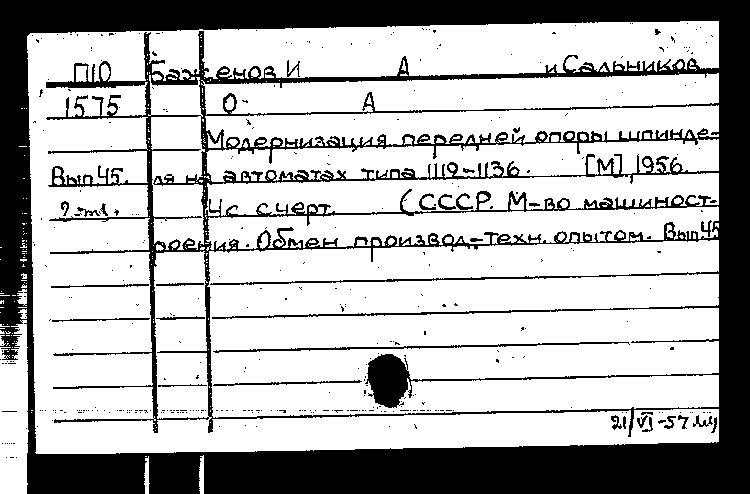 П10 Баженов, И А и Сальников,
1575 О. А
Модернизация передней опоры шпинде-
Вып 45. ля на автоматах типа 1112-1136. [М], 1956.
4с с черт. (СССР. М-во машиност-
роения. Обмен производ.-техн. опытом. Вып 45
21/VI-57